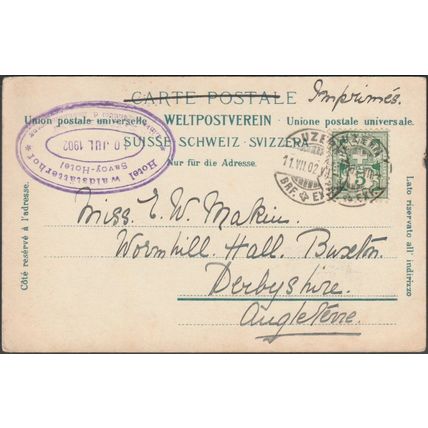 CARTE POSTALE
Imprimés.
Union postale universelle WELTPOSTVEREIN Unione postale universale
SUISSE SCHWEIZ SVIZZERA
Nur für die Adresse.
Côté resérvé à l'adresse.
Lato riservato all' indirizzo
Hotel
Savoy-Hotel
0 JUL 1902
Waldstätterhof
LUZERN
11.VII.02
BRF. EXP.
5
Miss. E. W. Makins.
Wormhill. Hall. Buxton.
Derbyshire.
Angleterre.